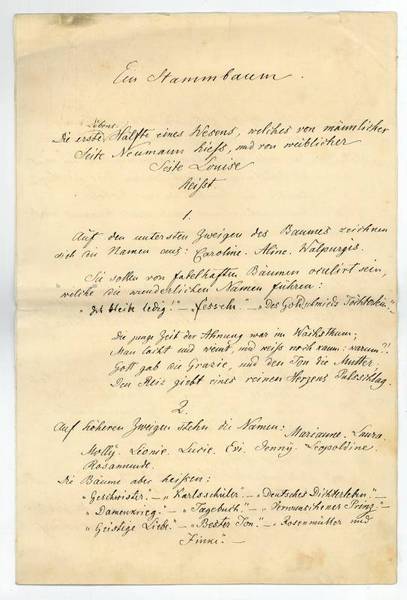 Ein Stammbaum.
Lebens
Die erste Hälfte eines Wesens, welches von männlicher
Seite Neumann hieß, und von weiblicher
Seite Louise
heißt
1.
Auf den untersten Zweigen des Baumes zeichnen
sich die Namen aus: Caroline. Aline. Walpurgis.
Sie sollen von fabelhaften Bäumen oculirt sein,
welche die wunderlichen Namen führen:
"Ich bleibe ledig!" – "Fesseln" – "Des Goldschmieds Töchterlein."
Die junge Zeit der Ahnung war im Wachsthum;
Man lacht und weint, und weiß noch kaum: warum?!
Gott gab die Grazie, und den Ton die Mutter.
Den Reiz giebt eines reinen Herzens Pulsschlag.
2.
Auf höheren Zweigen stehn die Namen: Marianne. Laura.
Molly. Leonie. Lucie. Evi. Jenny. Leopoldine.
Rosamunde.
Die Bäume aber heißen:
"Geschwister." – "Karlsschüler" – "Deutsches Dichterleben." –
"Damenkrieg." – "Tagebuch." – "Verwunschener Prinz." –
"Geistige Liebe." – "Bester Ton." – "Rosenmüller und
Finke." –